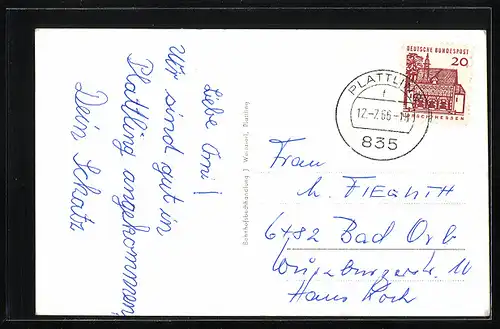 Liebe Omi!
Wir sind gut in
Plattling angekommen,
Dein Schatz
Bahnhofsbuchhandlung J. Weinzierl, Plattling
DEUTSCHE BUNDESPOST
20
LORSCH/HESSEN
PLATTLING
f
12.-7.66.-19
835
Frau
6482 Bad Orb
Würzburgerstr. 10
Haus Koch